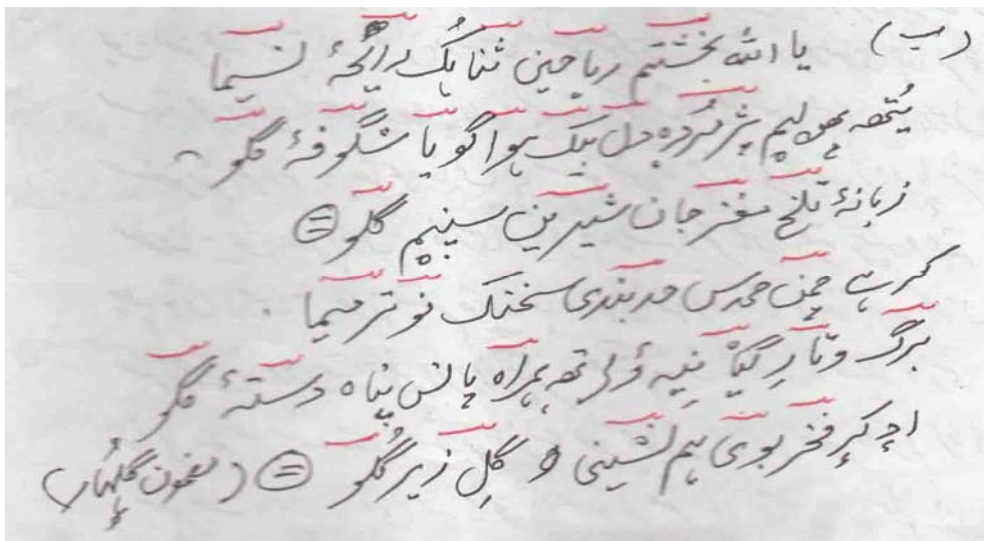 (ب) یا اللہ بخشتم ریاحین ثنا یُک رائحۂ نسیما
یُتھہ پھولیم پژمردہ دل بیک ہوا گویا شگوفۂ گلو
زبانۂ تلخ مغز جان شیرین سینیم گلو
کر ہے چمن حمدس حد بندی سخنک نو ترمیما
برگ و تار گیا نیہ ولی تھہ ہمراہ پانس پناہ دستۂ گلو
اچ کر فخر بوی ہم نشینی و گِل زیر گلو (مضمون گلہاب